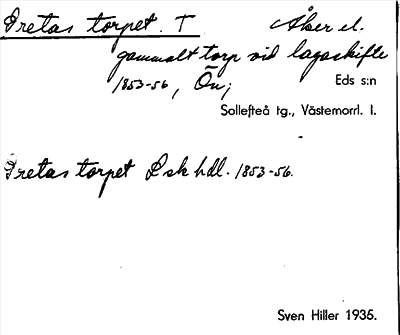 Gretas torpet. T Åker el.
gammalt torp vid lagaskifte
1853-56, Ön; Eds s:n
Sollefteå tg., Västernorrl. l.
Gretas torpet L sk hdl. 1853-56.
Sven Hiller 1935.